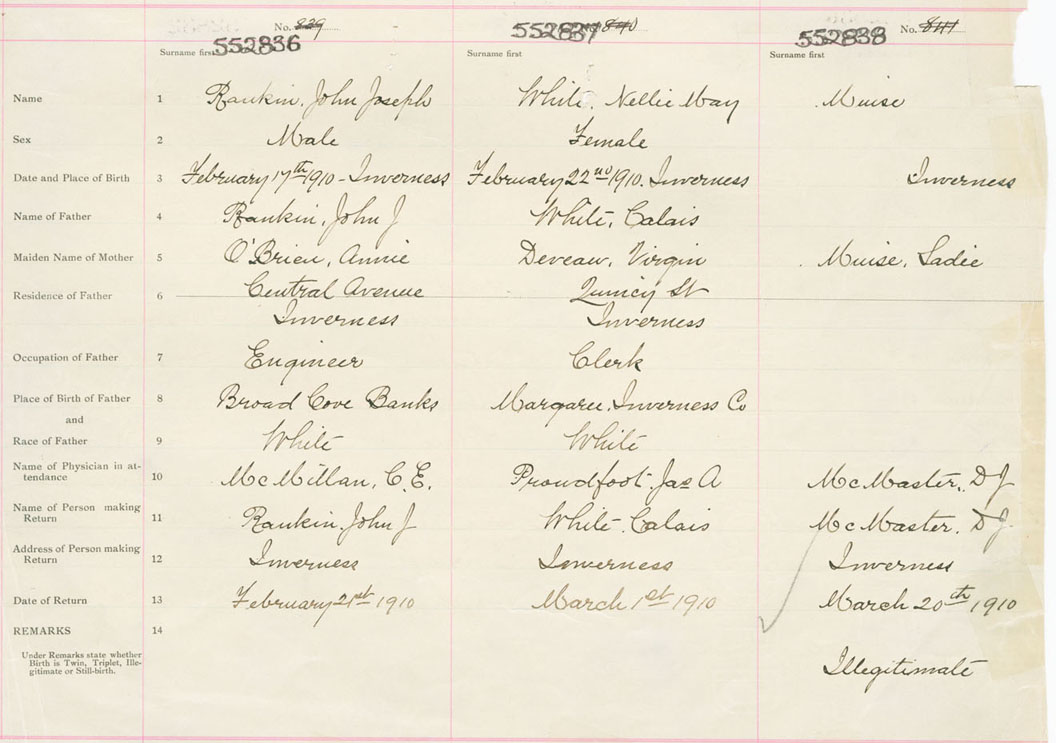 No. 839 No. 840 No. 841
552836 552837 552838
Surname first Surname first Surname first
Name 1 Rankin, John Joseph White, Nellie May Muise
Sex 2 Male Female
Date and Place of Birth 3 February 17th 1910 - Inverness February 22nd 1910. Inverness Inverness
Name of Father 4 Rankin, John J White, Calais
Maiden Name of Mother 5 O'Brien, Annie Deveau, Virgin Muise, Sadie
Residence of Father 6 Central Avenue Quincy St
Inverness Inverness
Occupation of Father 7 Engineer Clerk
Place of Birth of Father 8 Broad Cove Banks Margaree, Inverness Co
and
Race of Father 9 White White
Name of Physician in at-
tendance 10 McMillan, C.E. Proudfoot. Jas A McMaster, D J
Name of Person making
Return 11 Rankin, John J White. Calais McMaster, D J.
Address of Person making
Return 12 Inverness Inverness Inverness
Date of Return 13 February 21st 1910 March 1st 1910 March 20th 1910
REMARKS 14
Under Remarks state whether
Birth is Twin, Triplet, Ille-
gitimate or Still-birth.
Illegitimate